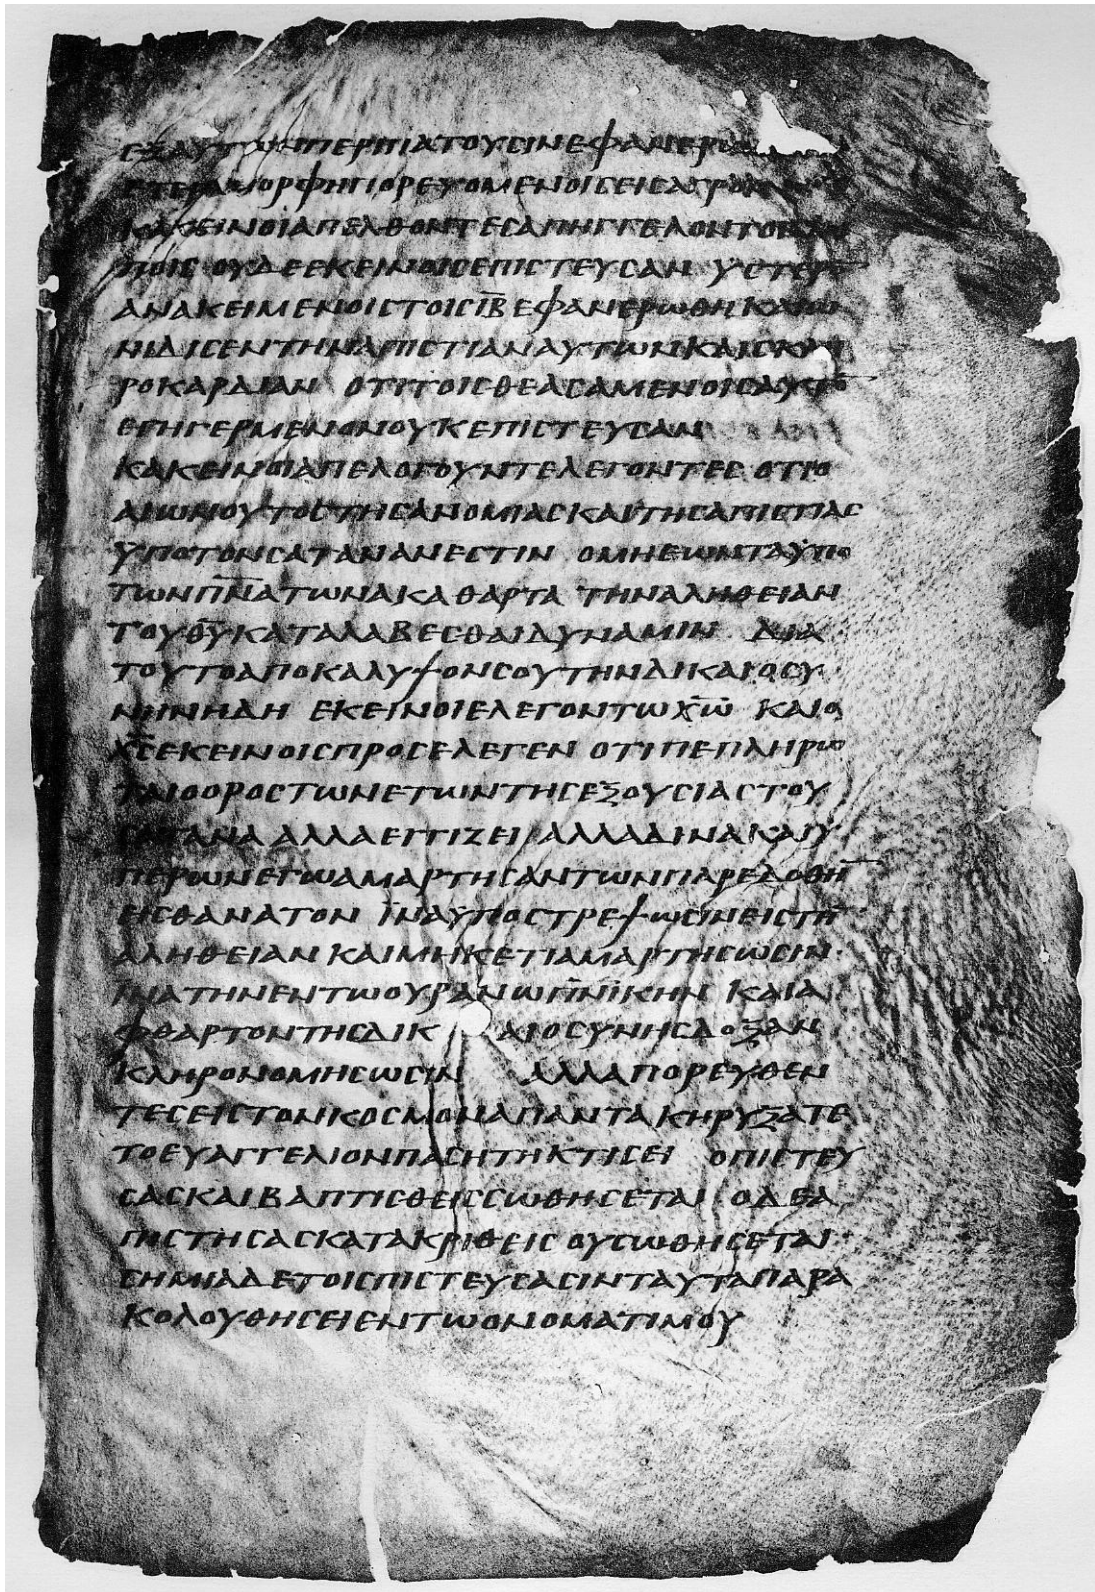 ΕΞΑΥΤΩΝΠΕΡΠΙΑΤΟΥϹΙΝΕΦΑΝΕΡΩ
ΕΤΕΡΑΜΟΡΦΗΠΟΡΕΥΟΜΕΝΟΙϹΕΙϹΑΓΡΟΝ
ΚΑΚΕΙΝΟΙΑΠΕΛΘΟΝΤΕϹΑΠΗΓΓΕΛΟΝΤΟΙϹΛΟΙ
ΠΟΙϹ ΟΥΔΕΕΚΕΙΝΟΙϹΕΠΙϹΤΕΥϹΑΝ ΥϹΤΕΡΟ̅
ΑΝΑΚΕΙΜΕΝΟΙϹΤΟΙϹΙ̅Β̅ΕΦΑΝΕΡΩΘΗΚΑΙΩ
ΝΙΔΙϹΕΝΤΗΝΑΠΙϹΤΙΑΝΑΥΤΩΝΚΑΙϹΚΛΗ
ΡΟΚΑΡΔΙΑΝ ΟΤΙΤΟΙϹΘΕΑϹΑΜΕΝΟΙϹΑΥΤΟ̅
ΕΓΗΓΕΡΜΕΝΟΝΟΥΚΕΠΙϹΤΕΥϹΑΝ
ΚΑΚΕΙΝΟΙΑΠΕΛΟΓΟΥΝΤΕΛΕΓΟΝΤΕϹ ΟΤΙΟ
ΑΙΩΝΟΥΤΟϹΤΗϹΑΝΟΜΙΑϹΚΑΙΤΗϹΑΠΙϹΤΙΑϹ
ΥΠΟΤΟΝϹΑΤΑΝΑΝΕϹΤΙΝ ΟΜΗΕΩΝΤΑΥΠΟ
ΤΩΝΠ̅Ν̅ΑΤΩΝΑΚΑΘΑΡΤΑ ΤΗΝΑΛΗΘΕΙΑΝ
ΤΟΥΘ̅Υ̅ΚΑΤΑΛΑΒΕϹΘΑΙΔΥΝΑΜΙΝ ΔΙΑ
ΤΟΥΤΟΑΠΟΚΑΛΥΨΟΝϹΟΥΤΗΝΔΙΚΑΙΟϹΥ
ΝΗΝΗΔΗ ΕΚΕΙΝΟΙΕΛΕΓΟΝΤΩΧ̅Ω̅ ΚΑΙΟ
Χ̅Ϲ̅ΕΚΕΙΝΟΙϹΠΡΟϹΕΛΕΓΕΝ ΟΤΙΠΕΠΛΗΡΩ
ΤΑΙΟΟΡΟϹΤΩΝΕΤΩΝΤΗϹΕΞΟΥϹΙΑϹΤΟΥ
ϹΑΤΑΝΑ ΑΛΛΑΕΓΓΙΖΕΙ ΑΛΛΑΔΙΝΑΚΑΙΥ
ΠΕΡΩΝΕΓΩΑΜΑΡΤΗϹΑΝΤΩΝΠΑΡΕΔΟΘΗ̅
ΕΙϹΘΑΝΑΤΟΝ ΪΝΑΥΠΟϹΤΡΕΨΩϹΙΝΕΙϹΤΗ̅
ΑΛΗΘΕΙΑΝΚΑΙΜΗΚΕΤΙΑΜΑΡΤΗϹΩϹΙΝ
ΪΝΑΤΗΝΕΝΤΩΟΥΡΑΝΩΠ̅Ν̅ΙΚΗΝ ΚΑΙΑ
ΦΘΑΡΤΟΝΤΗϹΔΙΚ ΑΙΟϹΥΝΗϹΔΟΞΑΝ
ΚΛΗΡΟΝΟΜΗϹΩϹΙΝ ΑΛΛΑΠΟΡΕΥΘΕΝ
ΤΕϹΕΙϹΤΟΝΚΟϹΜΟΝΑΠΑΝΤΑΚΗΡΥΞΑΤΕ
ΤΟΕΥΑΓΓΕΛΙΟΝΠΑϹΗΤΗΚΤΙϹΕΙ ΟΠΙϹΤΕΥ
ϹΑϹΚΑΙΒΑΠΤΙϹΘΕΙϹϹΩΘΗϹΕΤΑΙ ΟΔΕΑ
ΠΙϹΤΗϹΑϹΚΑΤΑΚΡΙΘΕΙϹ ΟΥϹΩΘΗϹΕΤΑΙ
ϹΗΜΙΑΔΕΤΟΙϹΠΙϹΤΕΥϹΑϹΙΝΤΑΥΤΑΠΑΡΑ
ΚΟΛΟΥΘΗϹΕΙΕΝΤΩΟΝΟΜΑΤΙΜΟΥ